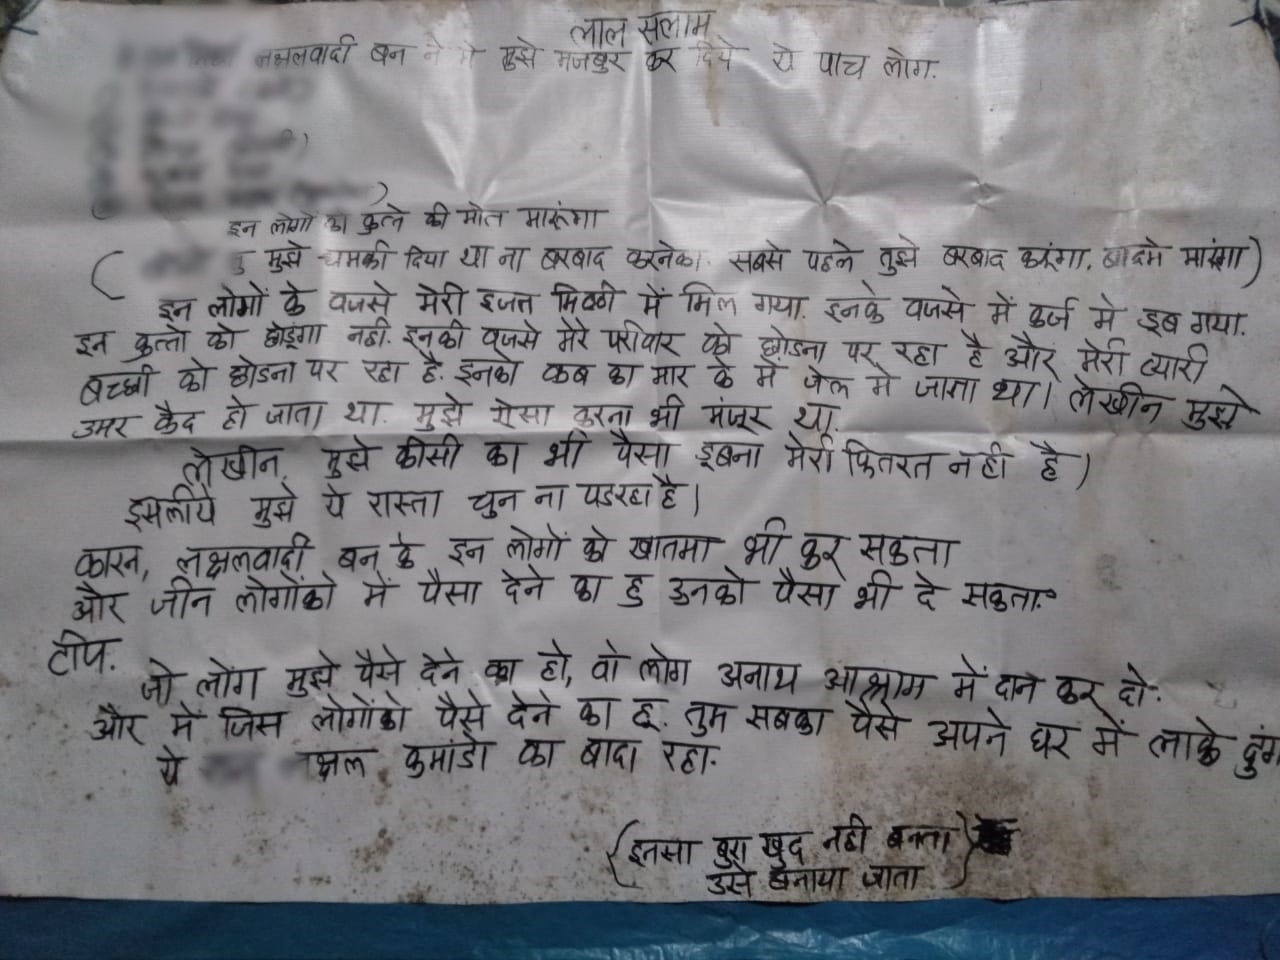 लाल सलाम
लक्षलवादी बन ने मे मुझे मजबुर कर दिये ये पाच लोग.
इन लोगो का कुत्ते की मौत मारूंगा
( मुझे धमकी दिया था ना बरबाद करनेका. सबसे पहले तुझे बरबाद करूंगा. बादमे मारुंगा)
इन लोगों के वजसे मेरी इजत मिठ्ठी में मिल गया. इनके वजसे में कर्ज मे डुब गया.
इन कुत्तो को छोडुंगा नही. इनकी वजसे मेरे परीवार को छोडना पर रहा है और मेरी प्यारी
बच्ची को छोडना पर रहा है. इनको कब का मार के में जेल मे जाता था। लेखीन मुझे
उमर कैद हो जाता था. मुझे ऐसा करना भी मंजूर था.
लेखीन, मुझे कीसी का भी पैसा डुबना मेरी फितरत नही है।
इसलीये मुझे ये रास्ता चुन ना पडरहा है।
कारन, लक्षलवादी बन के इन लोगों को खातमा भी कर सकता
और जीन लोगोंको में पैसा देने का हु उनको पैसा भी दे सकता.
टीप.
जो लोग मुझे पैसे देने का हो, वो लोग अनाथ आश्राम में दान कर दो.
और मे जिस लोगोंको पैसे देने का हू. तुम सबका पैसे अपने घर में लाके दुंग
ये क्षल कमांडो का बादा रहा.
{इनसा बुरा खुद नही बनता}
उसे बनाया जाता